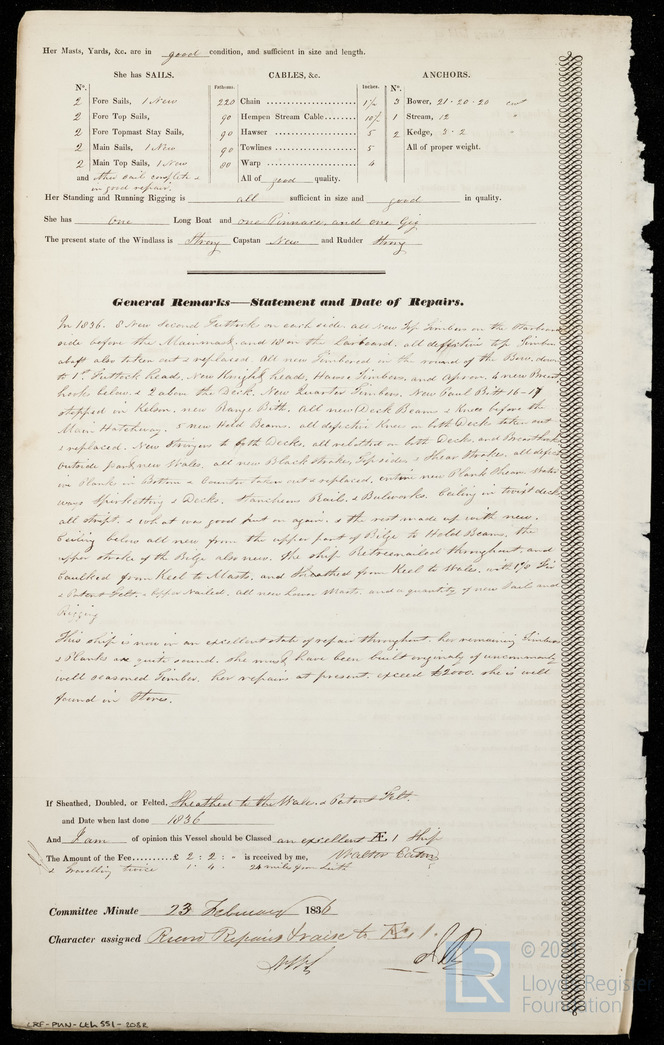 Her Masts, Yards, &c. are in good condition, and sufficient in size and length.
She has SAILS. CABLES, &c. ANCHORS.
Nº. Fathoms. Inches. Nº.
2 Fore Sails, 1 New 220 Chain 1½ 3 Bower, 21 - 20 - 20 cwt
2 Fore Top Sails, 90 Hempen Stream Cable 10½ 1 Stream, 12 "
2 Fore Topmast Stay Sails, 90 Hawser 5 2 Kedge, 3 - 2 "
2 Main Sails, 1 New 90 Towlines 5 All of proper weight.
2 Main Top Sails, 1 New 80 Warp 4
and other sails complete & All of good quality.
in good repair.
Her Standing and Running Rigging is all sufficient in size and good in quality.
She has One Long Boat and one Pinnace, and one Gig
The present state of the Windlass is Strong Capstan New and Rudder Strong
General Remarks—Statement and Date of Repairs.
In 1836. 8 New Second Futtock on each side. all New Top Timbers on the Starboard
side before the Mainmast, and 10 on the Larboard. all defective top Timber
abaft also taken out & replaced. All new Timbered in the round of the Bow, down
to 1st Futtock head, New Knight head, Hawse Timbers, and Apron. 4 new Breast
hooks below & 2 above the Deck. New Quarter Timbers. New Paul Bitt 16-17
stepped in Kelson. new Range Bitts. All new Deck Beams & Knees before the
Main Hatchway. 5 new Hold Beams. all defective Knees on both Decks taken out
& replaced. New Stringers to both Decks, all rebolted on both Decks, and Breasthooks
Outside part, new Wales, all new Black Strakes, Top sides & Shear Strakes, all defect
ive Planks in Bottom & Counter taken out & replaced, entire new Plank Sheer Water
ways Spirketting & Decks. Stancheons Rails & Bulworks. Ceiling in twixt decks
all stript, & what was good put on again, & the rest made up with new.
Ceiling below all new from the upper part of Bilge to Hold Beams, the
upper strake of the Bilge also new. The ship Retreenailed throughout, and
Caulked from Keel to Masts, and Sheathed from Keel to Wales, with 1⅛ Fir
& Patent Felt, & Copper Nailed. All new Lower Masts, and a quantity of new Sails and
Rigging
This ship is now in an excellent state of repair throughout, her remaining Timbers
& Planks are quite sound. she must have been built originally of uncommonly
well seasoned Timber. her repairs at present exceed £2000. she is well
found in Stores.
If Sheathed, Doubled, or Felted, Sheathed to the Wales & Patent Felt.
and Date when last done 1836
And I am of opinion this Vessel should be Classed an excellent Æ 1 Ship
The Amount of the Fee £ 2 : 2 : - is received by me, Walter Paton
& travelling twice 1 : 4 . 24 miles from Leith
Committee Minute 23 February 1836
Character assigned Record Repairs & raise to Æ 1.
LRF-PUN-LEI551-208R
© 20
LR
Lloyd's Register
Foundation